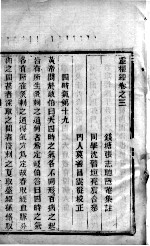 靈樞經卷之三
錢塘張志聰隱菴集註
同學沈
門人莫昌
四時氣第十九
黃帝問於岐伯曰夫四時之氣各不同形百病之起
皆有所生灸刺之道何者為定岐伯答曰四時之氣
各有所在灸刺之道得氣穴為定故春取經血脈分
肉之間甚者深取之間者淺刺之夏取盛經孫絡取